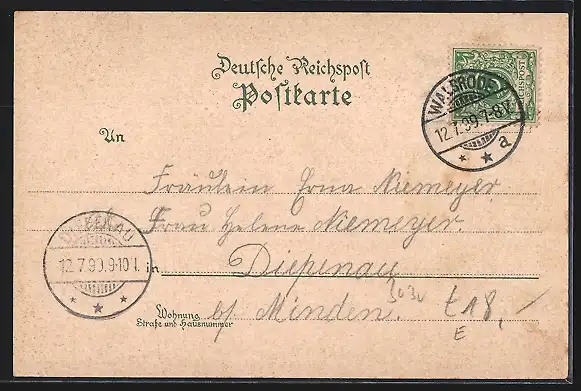 Deutsche Reichspost
Postkarte
REICHSPOST
WALSRODE
12.7.99.7-8V.
a
An
Fräulein Erna Niemeyer
Frau Helene Niemeyer.
DIEPENAU
12.7.99.9-10
in Diepenau
Wohnung
Straße und Hausnummer
b/ Minden.
3030
£18,-
E